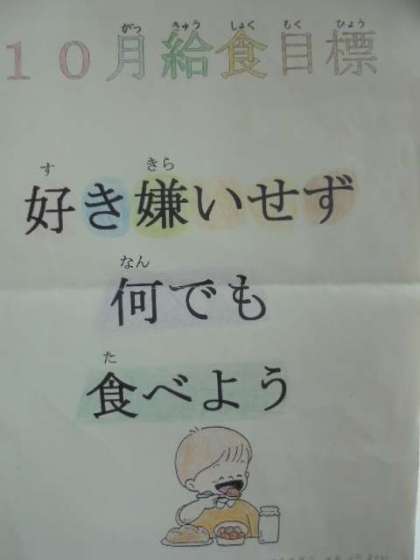 10月給食目標
好き嫌いせず
何でも
食べよう